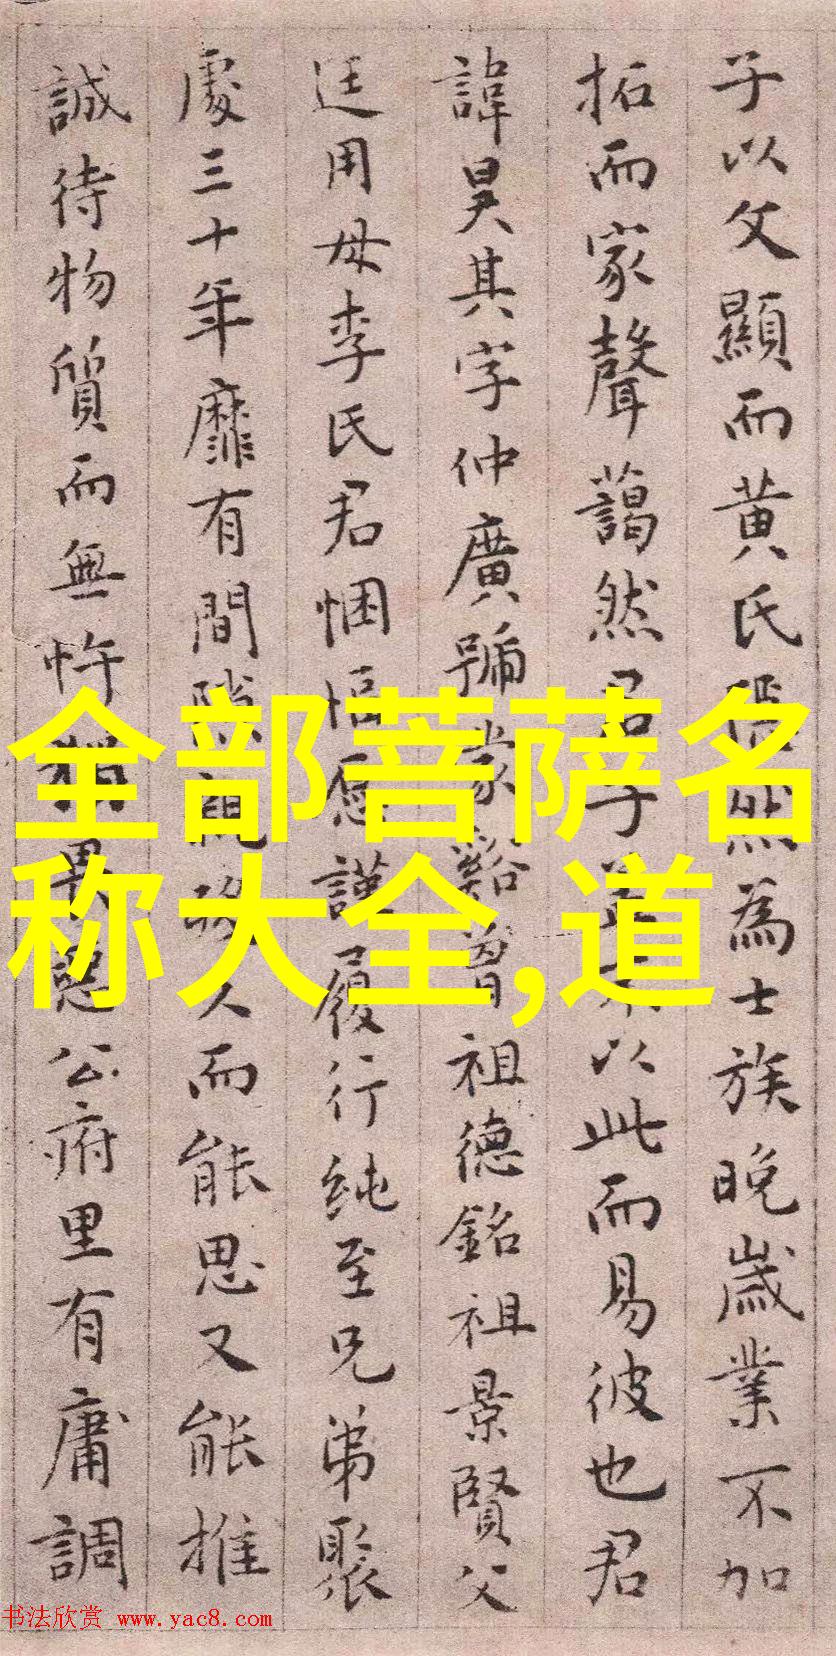 子以父顯而黄氏然為士族晚歲業不加
拓而家聲藹然君子不以此而易彼也君
諱昊其字仲廣號曾祖德銘祖景賢父
廷用母李氏君悃愊愿謹履行纯至兄弟聚
處三十年靡有間隙人而能思又能推
誠待物質而無忤公府里有庸調
全部菩萨名
称大全,道
书法欣赏 www.yac8.com